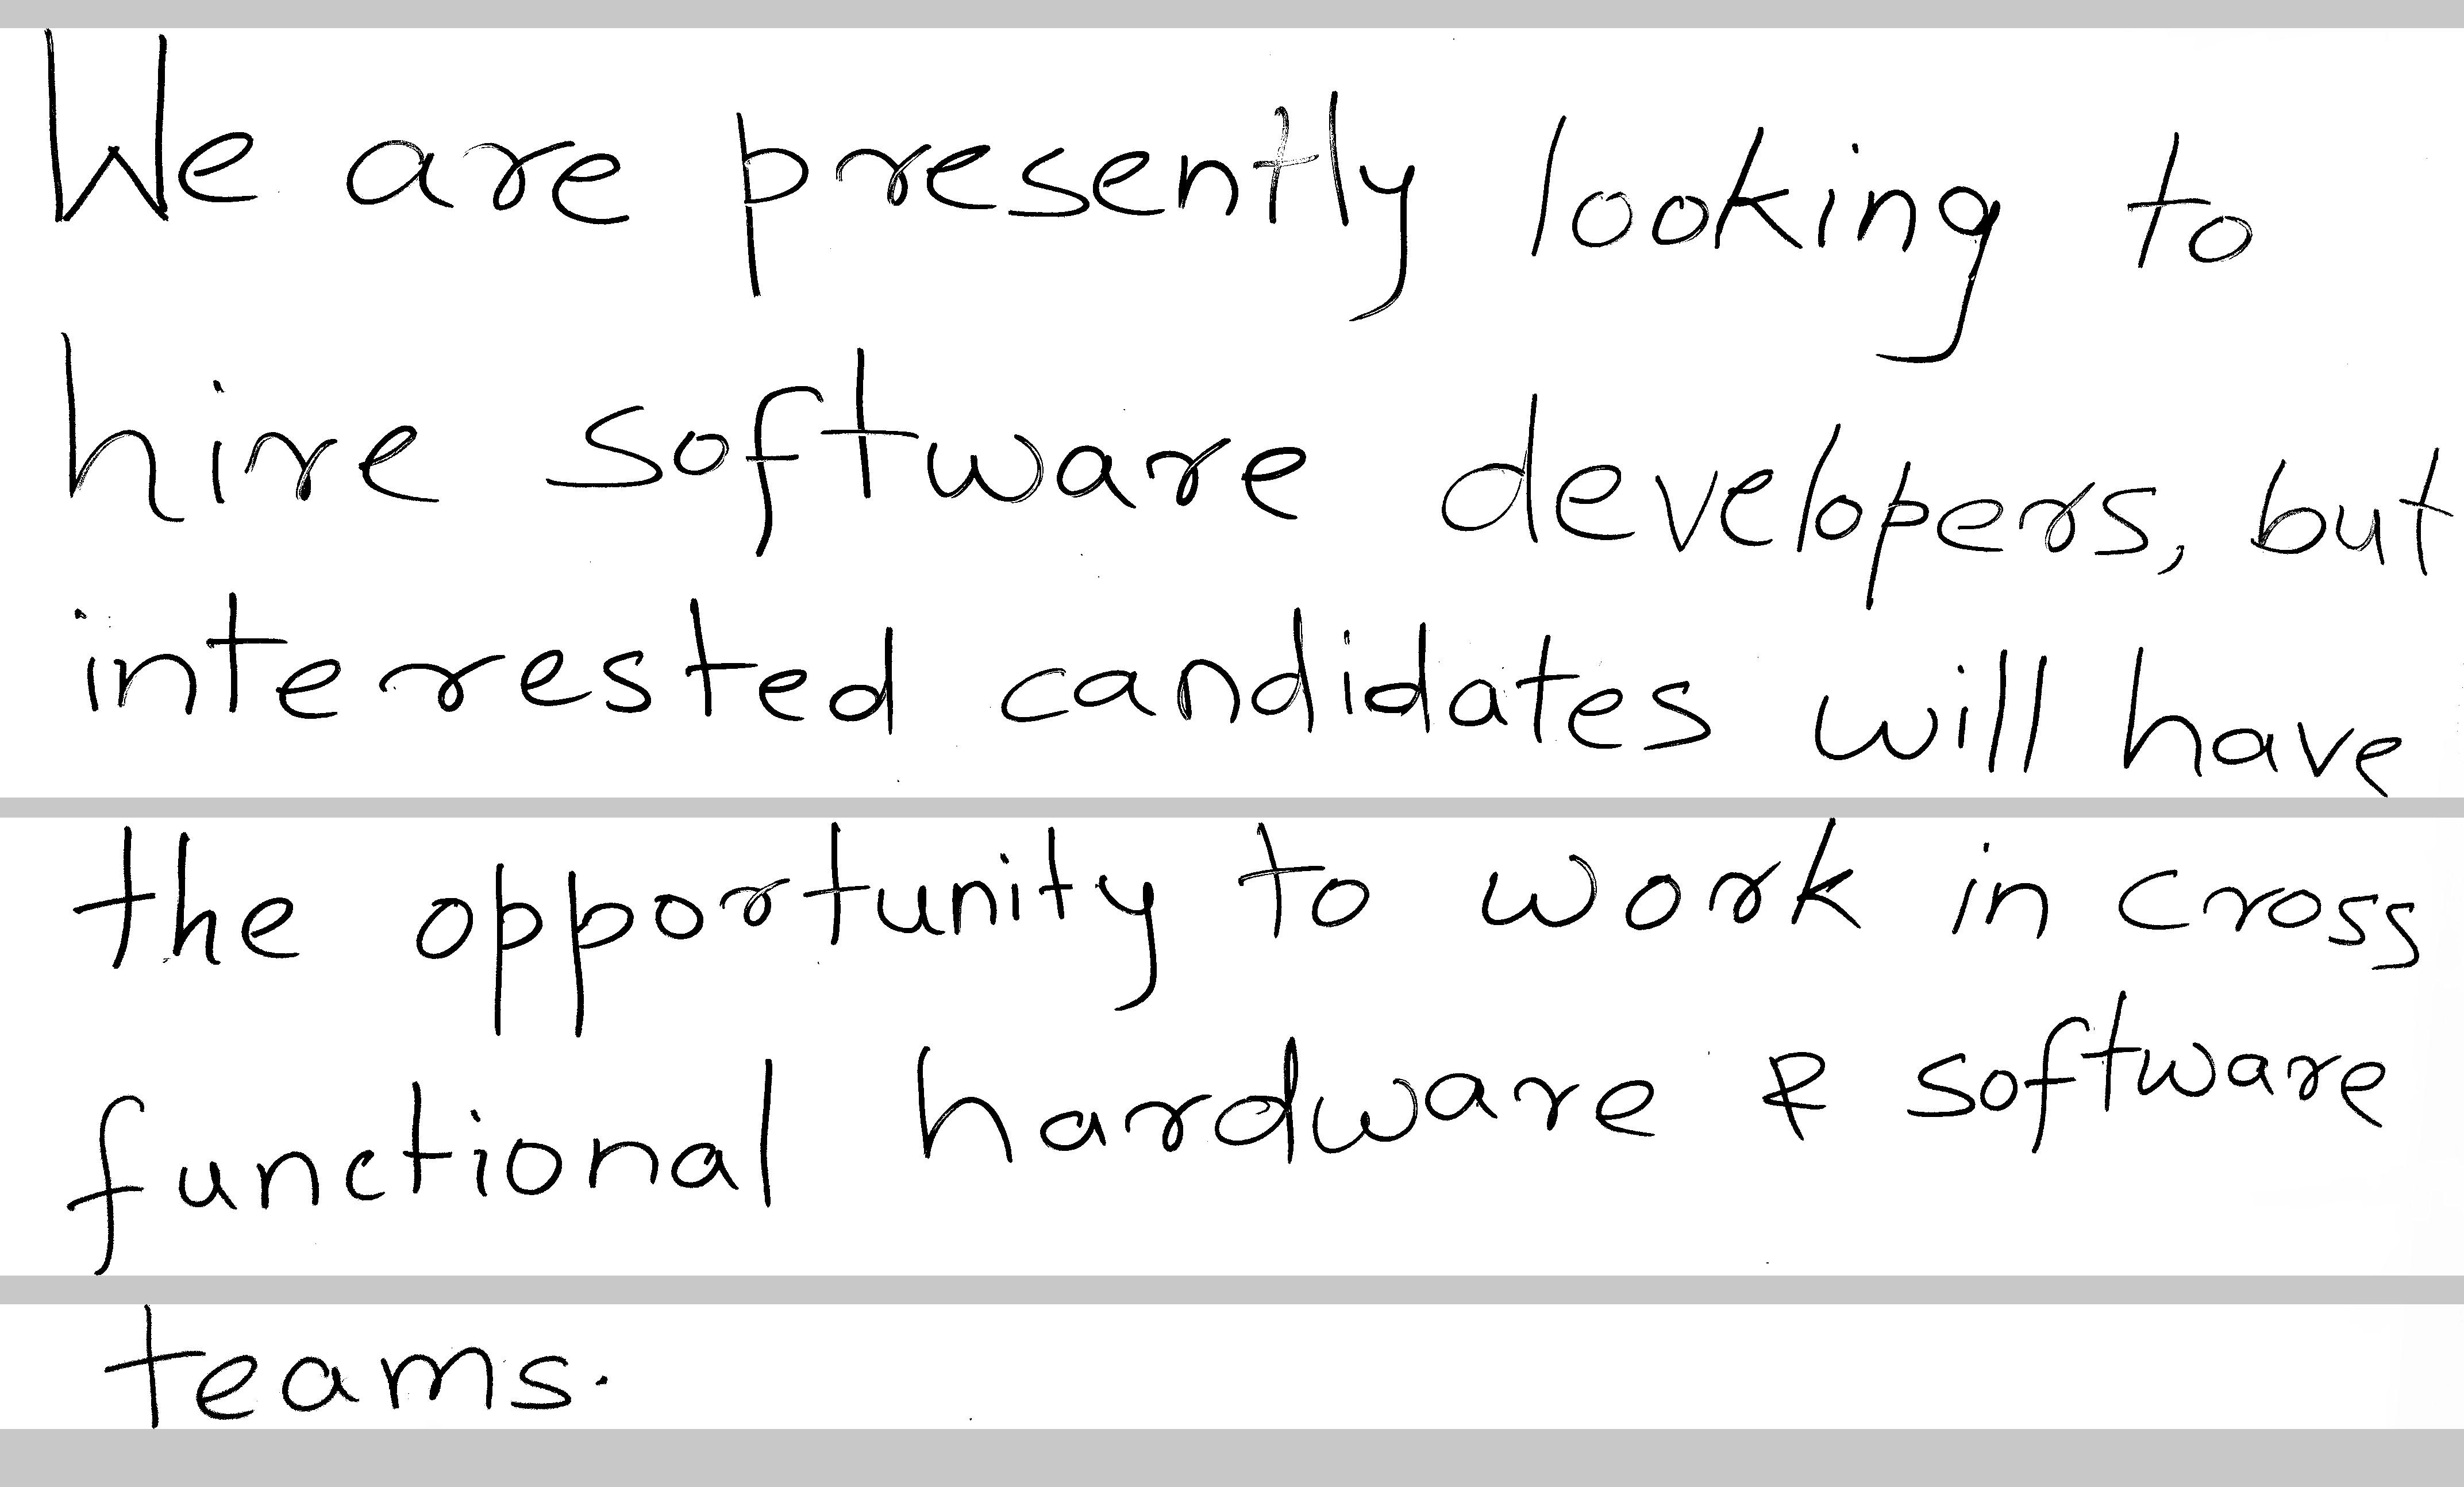 We are presently looking to
hire software developers, but
interested candidates will have
the opportunity to work in cross
functional hardware & software
teams.